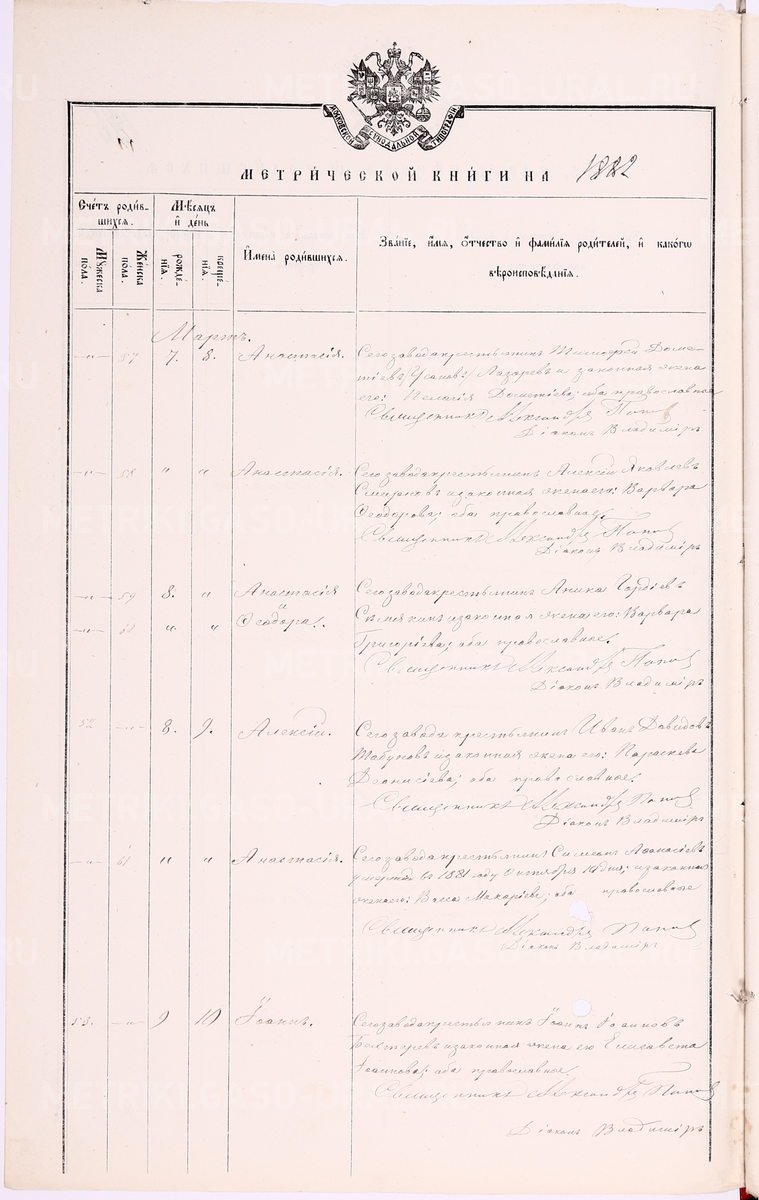 МОСКОВСКОЙ СѴНОДАЛЬНОЙ ТИПОГРАФІИ
МЕТРИ́ЧЕСКОЙ КНИ́ГИ НА 1882
Сче́тъ роди́в- Мѣ́сяцъ
шихся. и҆ де́нь
И҆мена̀ роди́вшихся. Зва́нїе, и҆́мя, ѻ҆́тчество и҆ фами́лїя роди́телей, и҆ како́гѡ
вѣроисповѣ́данїя.
Мꙋ́жеска по́ла. Же́нска по́ла. рожде́- нїя. креще́- нїя.
Мартъ.
—„— 57 7. 8. Анастасія. Сего завода крестьянинъ Тимофей Доме-
тіевъ Лазаревъ и законная жена
его: Пелагія Дометіева; оба православные
Священникъ Александръ Поповъ
Діаконъ Владиміръ
—„— 58 „ „ Анастасія. Сего завода крестьянинъ Алексій Яковлевъ
Смирновъ и законная жена его: Варвара
Ѳеодорова; оба православные.
Священникъ Александръ Поповъ
Діаконъ Владиміръ
—„— 59 8. „ Анастасія Сего завода крестьянинъ Аника Гордіевъ
и
—„— 60 „ „ Ѳеодора. Сѣмякинъ и законная жена его: Варвара
Григорієва; оба православные.
Священникъ Александръ Поповъ
Діаконъ Владиміръ
52 —„— 8. 9. Алексій. Сего завода крестьянинъ Иванъ Давидовъ
Табуновъ и законная жена его: Параскева
Діонисіева; оба православные.
Священникъ Александръ Поповъ
Діаконъ Владиміръ
—„— 61 „ „ Анастасія. Сего завода крестьянинъ Симеонъ Аѳанасіевъ
умершій въ 1881 году Октября дня; и законная
жена его: Васса Макаріева; оба православные
Священникъ Александръ Поповъ
Діаконъ Владиміръ
53. —„— 9 10 Іоаннъ. Сего завода крестьянинъ Іоаннъ Іоанновъ
и законная жена его Елисавета
Іоаннова; оба православные.
Священникъ Александръ Поповъ
Діаконъ Владиміръ